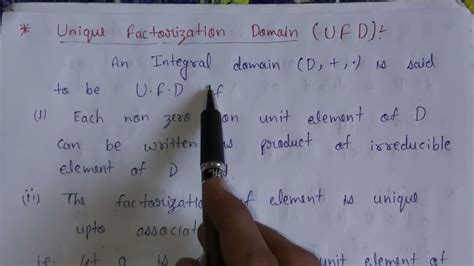 * Unique Factorization Domain (UFD):
An Integral domain (D, +, ·) is said
to be U.F.D
(i) Each non zero non unit element of D
can be written product of irreducible
element of D
(ii) The of element is unique
upto
i.e. let a is unit element of